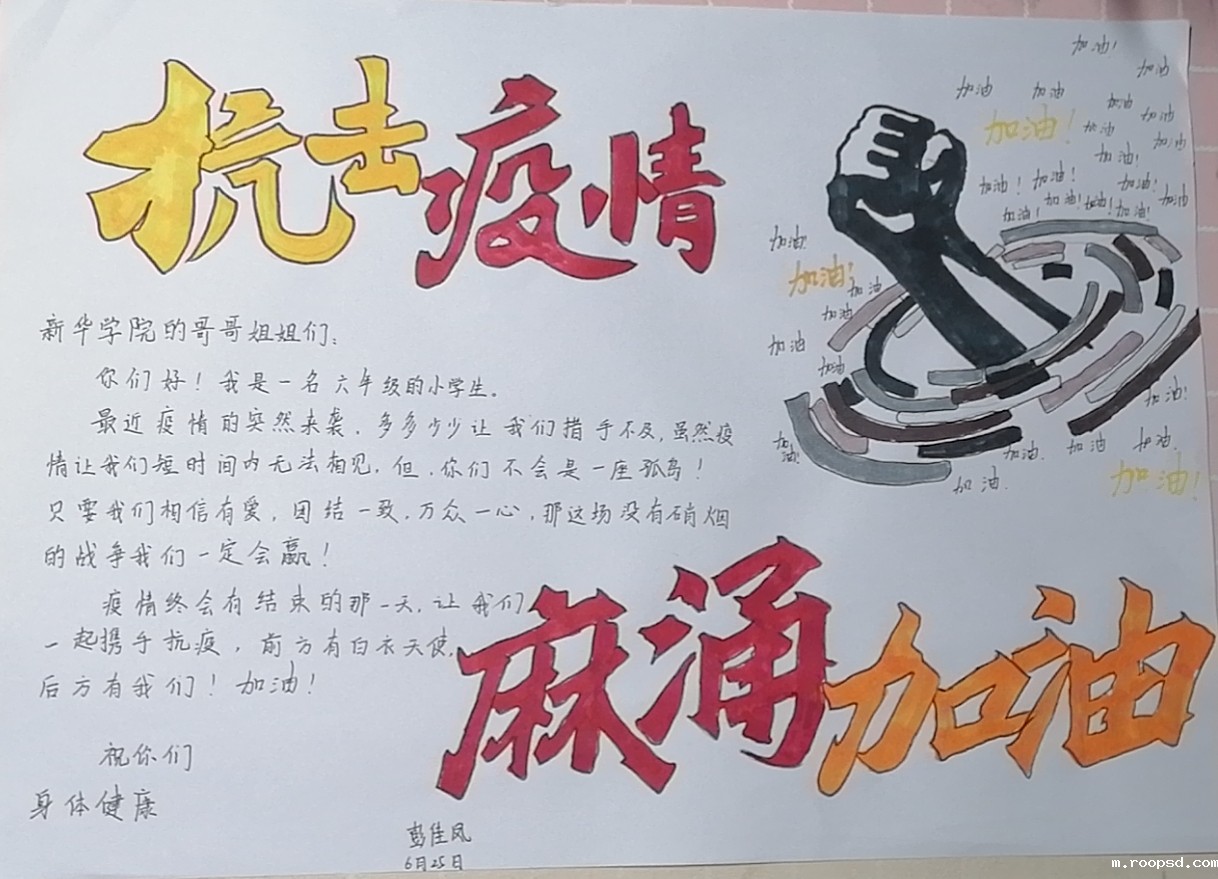 抗击疫情
新华学院的哥哥姐姐们：
你们好！我是一名六年级的小学生。
最近疫情的突然来袭，多多少少让我们措手不及，虽然疫
情让我们短时间内无法相见，但，你们不会是一座孤岛！
只要我们相信有爱，团结一致，万众一心，那这场没有硝烟
的战争我们一定会赢！
疫情终会有结束的那一天，让我们
一起携手抗疫，前方有白衣天使，
后方有我们！加油！
祝你们
身体健康
彭佳凤
6月25日
加油！
加油
加油
加油
加油
加油
加油！
加油
加油
加油！
加油！
加油！
加油！
加油！
加油！
加油
加油！
加油！
加油
加油！
加油
加油
加油
加油
加油！
加油
加油！
加油.
加油
加油.
加油！
加油.
麻涌加油
m.roopsd.com